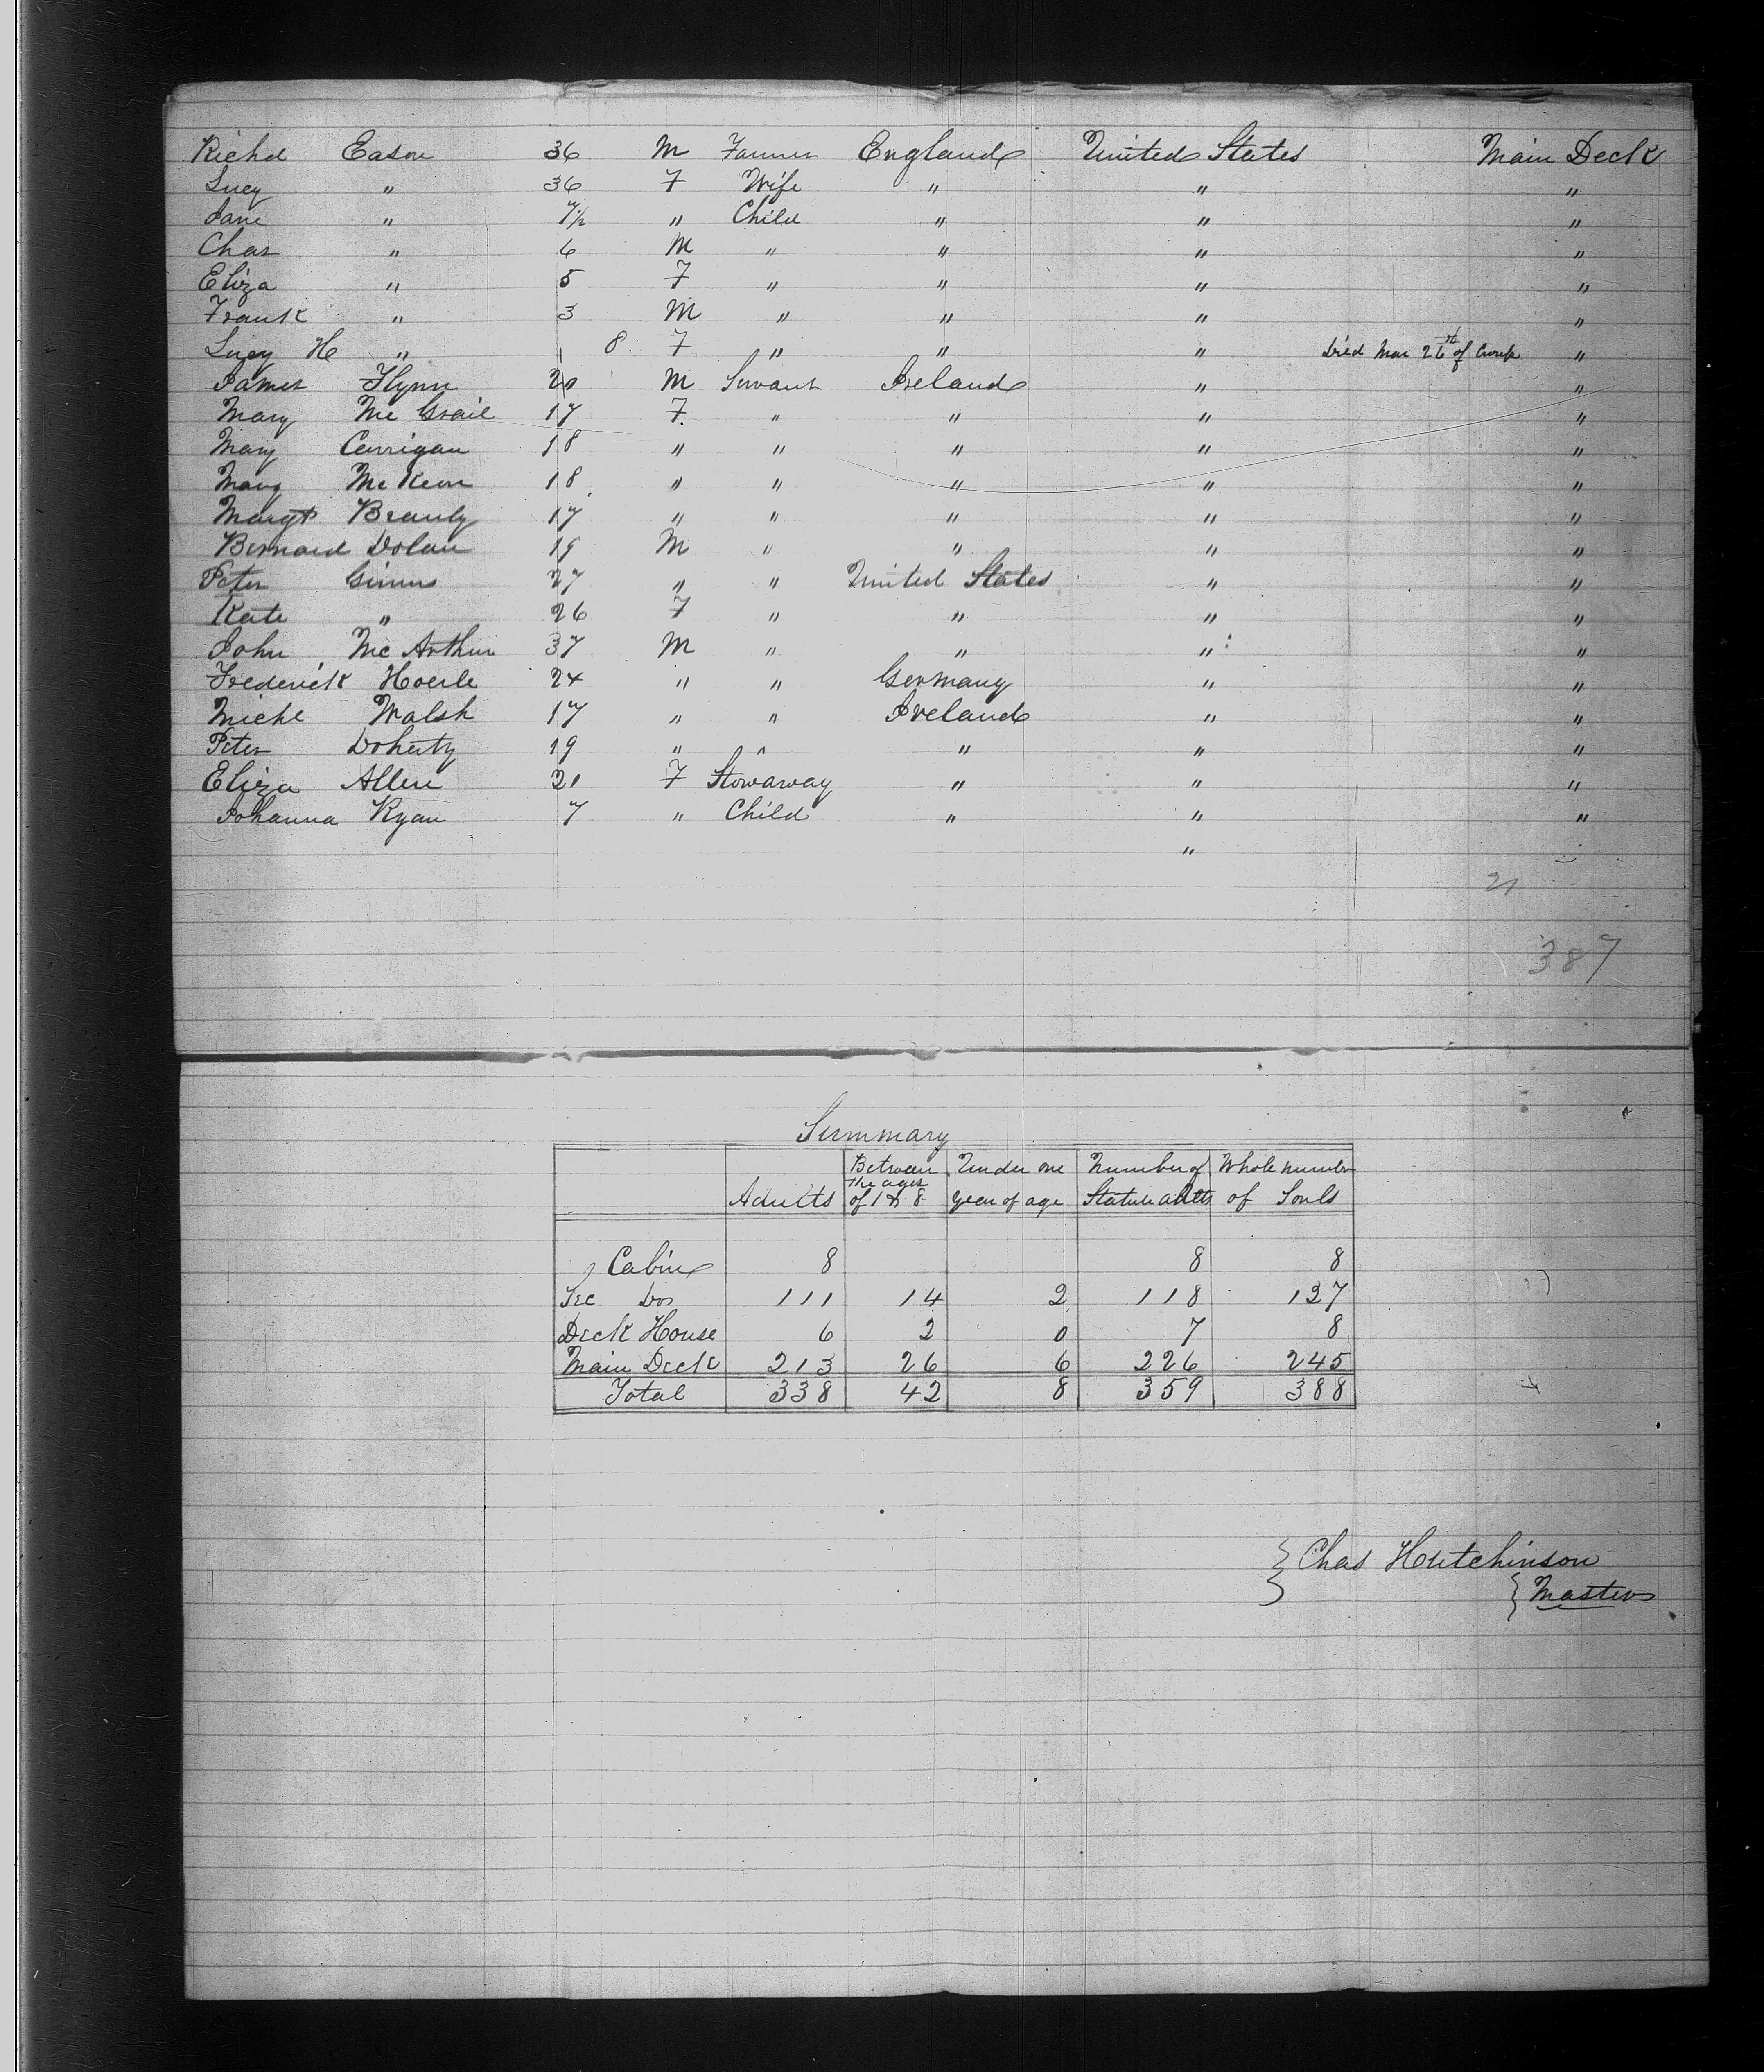 Richd Eason 36 M Farmer England United States Main Deck
Lucy " 36 F Wife " " "
Jane " 7½ " Child " " "
Chas " 6 M " " " "
Eliza " 5 F " " " "
Frank " 3 M " " " "
Lucy H " 8 F " " " Died Mar 26th of Croup "
James Flynn 20 M Servant Ireland " "
Mary Mc Grail 17 F " " " "
Mary Carrigan 18 " " " " "
Mary Mc Keon 18 " " " " "
Margt 17 " " " " "
Bernard Dolan 19 M " " " "
Peter 27 " " United States " "
Kate " 26 F " " " "
John Mc Arthur 37 M " " " "
Frederick Hoerle 24 " " Germany " "
Michl Walsh 17 " " Ireland " "
Peter Doherty 19 " " " " "
Eliza Allen 21 F Stowaway " " "
Johanna Ryan 7 " Child " " "
"
21
387
Summary
Adults Between the ages of 1 & 8 Under one year of age Number of Statute adults Whole number of Souls
Cabin 8 8 8
Sec Do 111 14 2 118 127
Deck House 6 2 0 7 8
Main Deck 213 26 6 226 245
Total 338 42 8 359 388
Chas Hutchinson
Master